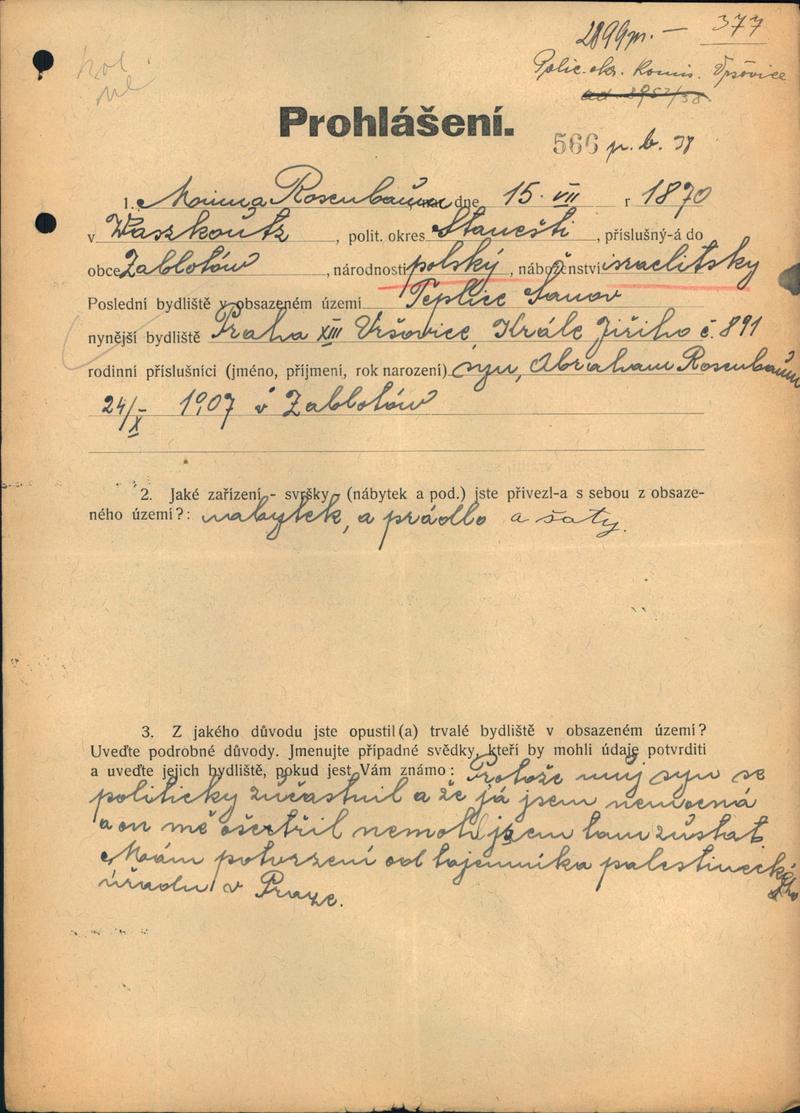 2899pr. — 377
Polic. okr. Komis. Vršovice
Prohlášení.
566 p. b. 38
1. Rosenbaum dne 15. VII r 1870
v Waszkoutz, polit. okres Stanešti, příslušný-á do
obce Zablotów, národnosti polský, náboženství israelitsky
Poslední bydliště v obsazeném území Teplice Šanov
nynější bydliště Praha XIII Vršovice, Krále Jiřího č. 891
rodinní příslušníci (jméno, příjmení, rok narození) syn, Abraham Rosenbaum
24/X 1907 v Zablotów
2. Jaké zařízení - svršky - (nábytek a pod.) jste přivezl-a s sebou z obsaze-
ného území?: nabytek, a prádlo a šaty.
3. Z jakého důvodu jste opustil(a) trvalé bydliště v obsazeném území?
Uveďte podrobné důvody. Jmenujte případné svědky, kteří by mohli údaje potvrditi
a uveďte jejich bydliště, pokud jest Vám známo: Protože muj syn se
politicky zučastnil a že já jsem nemocná
a on mě ošetřil nemohl jsem tam zůstat.
Mám potvrzení od tajemnika palestineckého
úřadu v Praze.